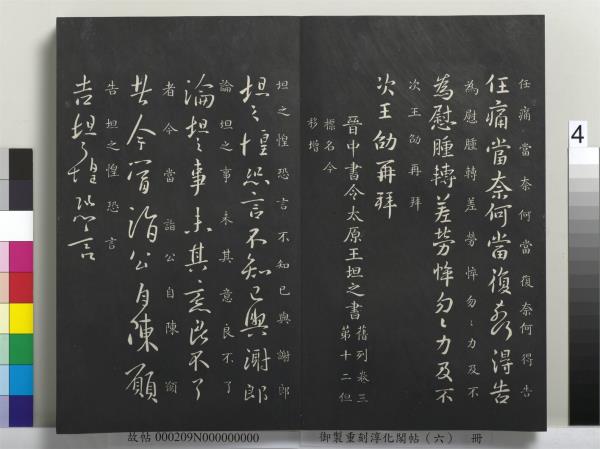 任痛當奈何當復奈何得告
任痛當奈何當復奈何得告
為慰腫轉差勞悴勿〻力及不
為慰腫轉差勞悴勿〻力及不
次王劭再拜
次王劭再拜
晉中書令太原王坦之書
舊列卷三
第十二但
標名今
移增
坦之惶恐言不知已與謝郎
坦之惶恐言不知已與謝郎
論坦之事未其意良不了
論坦之事未其意良不了
者今當詣公自陳願
者今當詣公自陳願
告坦之惶恐言
告坦之惶恐言
4
故帖 000209N000000000
御製重刻淳化閣帖(六) 冊